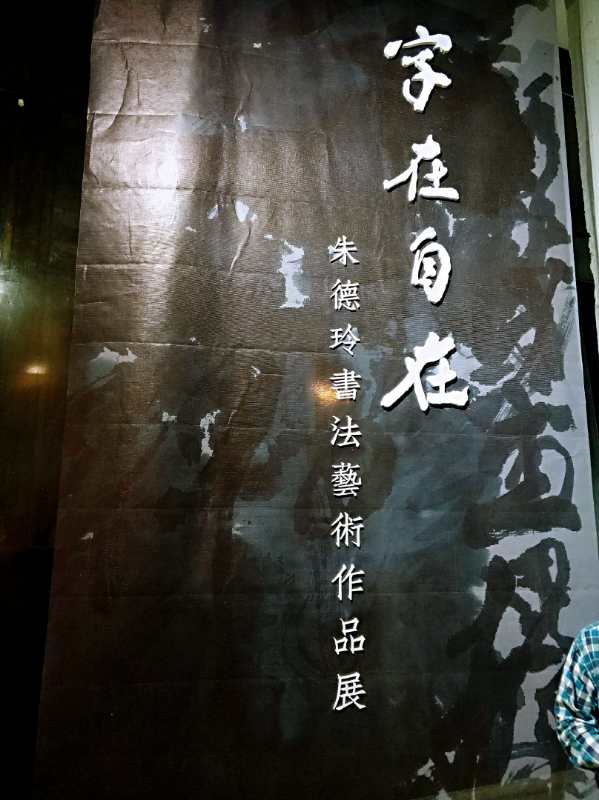 字在自在
朱德玲書法藝術作品展